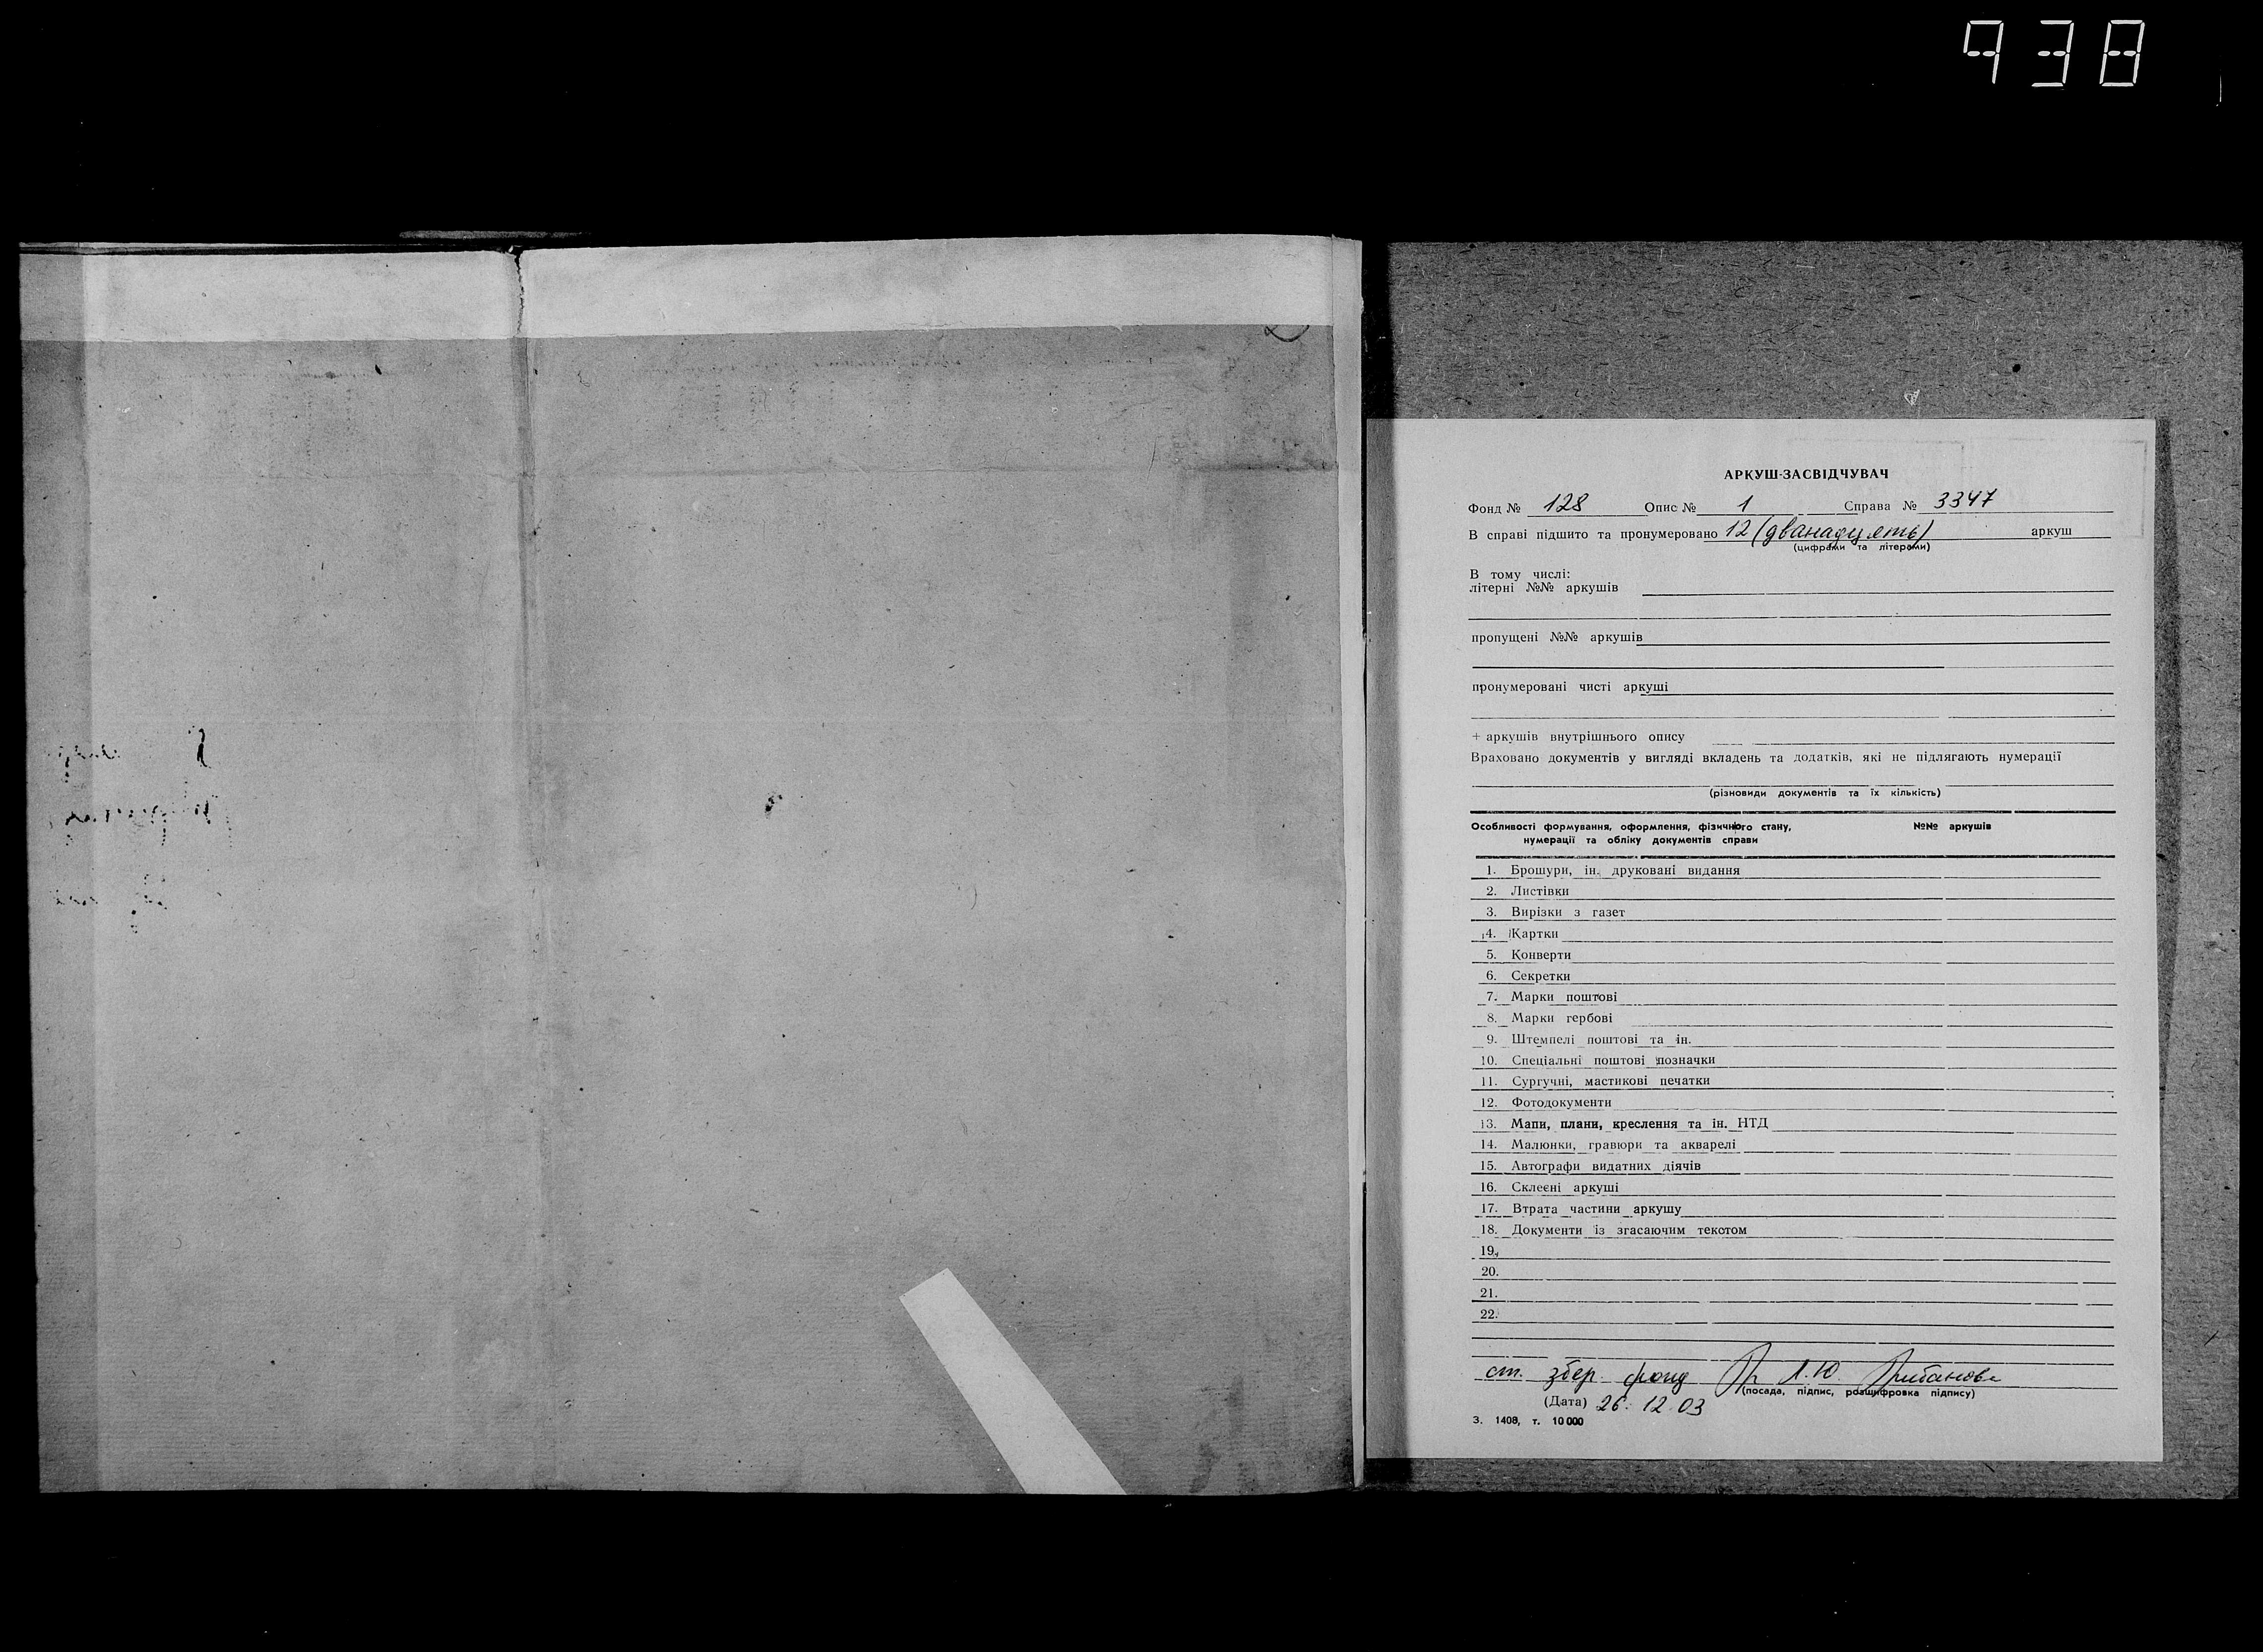 938
АРКУШ-ЗАСВІДЧУВАЧ
Фонд № 128 Опис № 1 Справа № 3347
В справі підшито та пронумеровано 12 (дванадцять) аркуш
(цифрами та літерами)
В тому числі:
літерні №№ аркушів
пропущені №№ аркушів
пронумеровані чисті аркуші
+ аркушів внутрішнього опису
Враховано документів у вигляді вкладень та додатків, які не підлягають нумерації
(різновиди документів та їх кількість)
Особливості формування, оформлення, фізичного стану, №№ аркушів
нумерації та обліку документів справи
1. Брошури, ін. друковані видання
2. Листівки
3. Вирізки з газет
4. Картки
5. Конверти
6. Секретки
7. Марки поштові
8. Марки гербові
9. Штемпелі поштові та ін.
10. Спеціальні поштові позначки
11. Сургучні, мастикові печатки
12. Фотодокументи
13. Мапи, плани, креслення та ін. НТД
14. Малюнки, гравюри та акварелі
15. Автографи видатних діячів
16. Склеєні аркуші
17. Втрата частини аркушу
18. Документи із згасаючим текстом
19.
20.
21.
22.
ст. збер. фонд Л.Ю.
(посада, підпис, розшифровка підпису)
(Дата) 26.12.03
З. 1408, т. 10 000